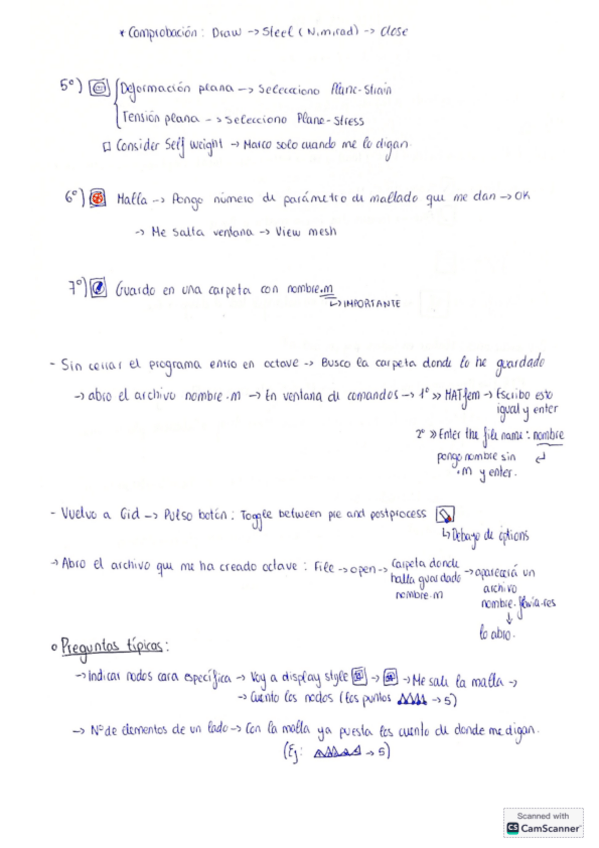 * Comprobación: Draw → Steel (N,m,rad) → close
5º) Deformación plana → Selecciono Plane-Strain
Tensión plana → Selecciono Plane-Stress
□ Consider Self Weight → Marco solo cuando me lo digan.
6º) Malla → Pongo número de parámetro de mallado que me dan → OK
→ Me salta ventana → View mesh
7º) Guardo en una carpeta con nombre.m
↳ IMPORTANTE
- Sin cerrar el programa entro en octave → Busco la carpeta donde lo he guardado
→ abro el archivo nombre.m → En ventana de comandos → 1º >> MATfem → Escribo esto
igual y enter
2º >> Enter the file name: nombre
pongo nombre sin ↵
.m y enter.
- Vuelvo a Gid → Pulso botón: Toggle between pre and postprocess
↳ Debajo de options
→ Abro el archivo que me ha creado octave: File → open → Carpeta donde
halla guardado
nombre.m
→ aparecerá un
archivo
nombre.flavia.res
↓
lo abro.
o Preguntas típicas:
→ Indicar nodos cara específica → Voy a display style → → Me sale la malla →
→ Cuento los nodos (los puntos → 5)
→ Nº de elementos de un lado → Con la malla ya puesta los cuento de donde me digan.
(Ej: → 5)
Scanned with
CS CamScanner